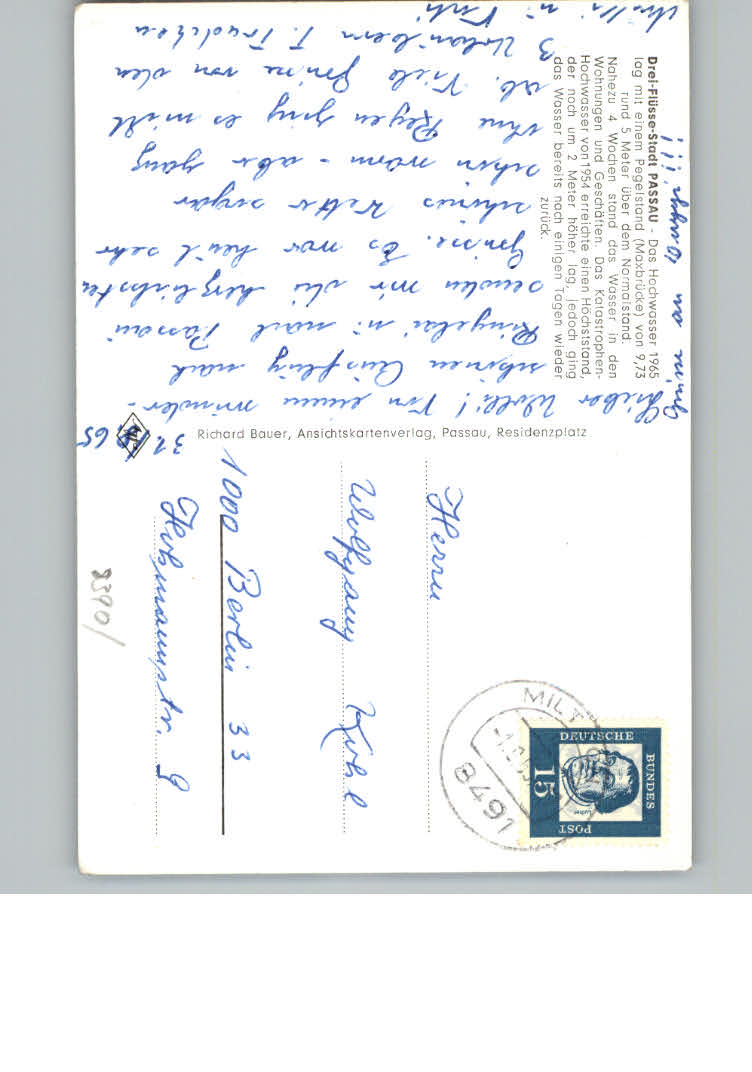 Drei-Flüsse-Stadt PASSAU - Das Hochwasser 1965
lag mit einem Pegelstand (Maxbrücke) von 9,73
rund 5 Meter über dem Normalstand.
Nahezu 4 Wochen stand das Wasser in den
Wohnungen und Geschäften. Das Katastrophen-
Hochwasser von 1954 erreichte einen Höchststand,
der noch um 2 Meter höher lag, jedoch ging
das Wasser bereits nach einigen Tagen wieder
zurück.
31. 65
Lieber Wolfi! Von einem wunder-
schönen Ausflug nach
Ringelai u. nach Passau
senden wir die herzlichsten
Grüsse. Es war heut sehr
schönes Wetter sogar
schon warm - aber ganz
ohne Regen ging es nicht
ab. Viele Grüsse von den
3 Urlaubern
u.
Richard Bauer, Ansichtskartenverlag, Passau, Residenzplatz
Herrn
Wolfgang Kohl
1000 Berlin 33
9
8390/
8491
MILT
DEUTSCHE
BUNDES
POST
15
Luther